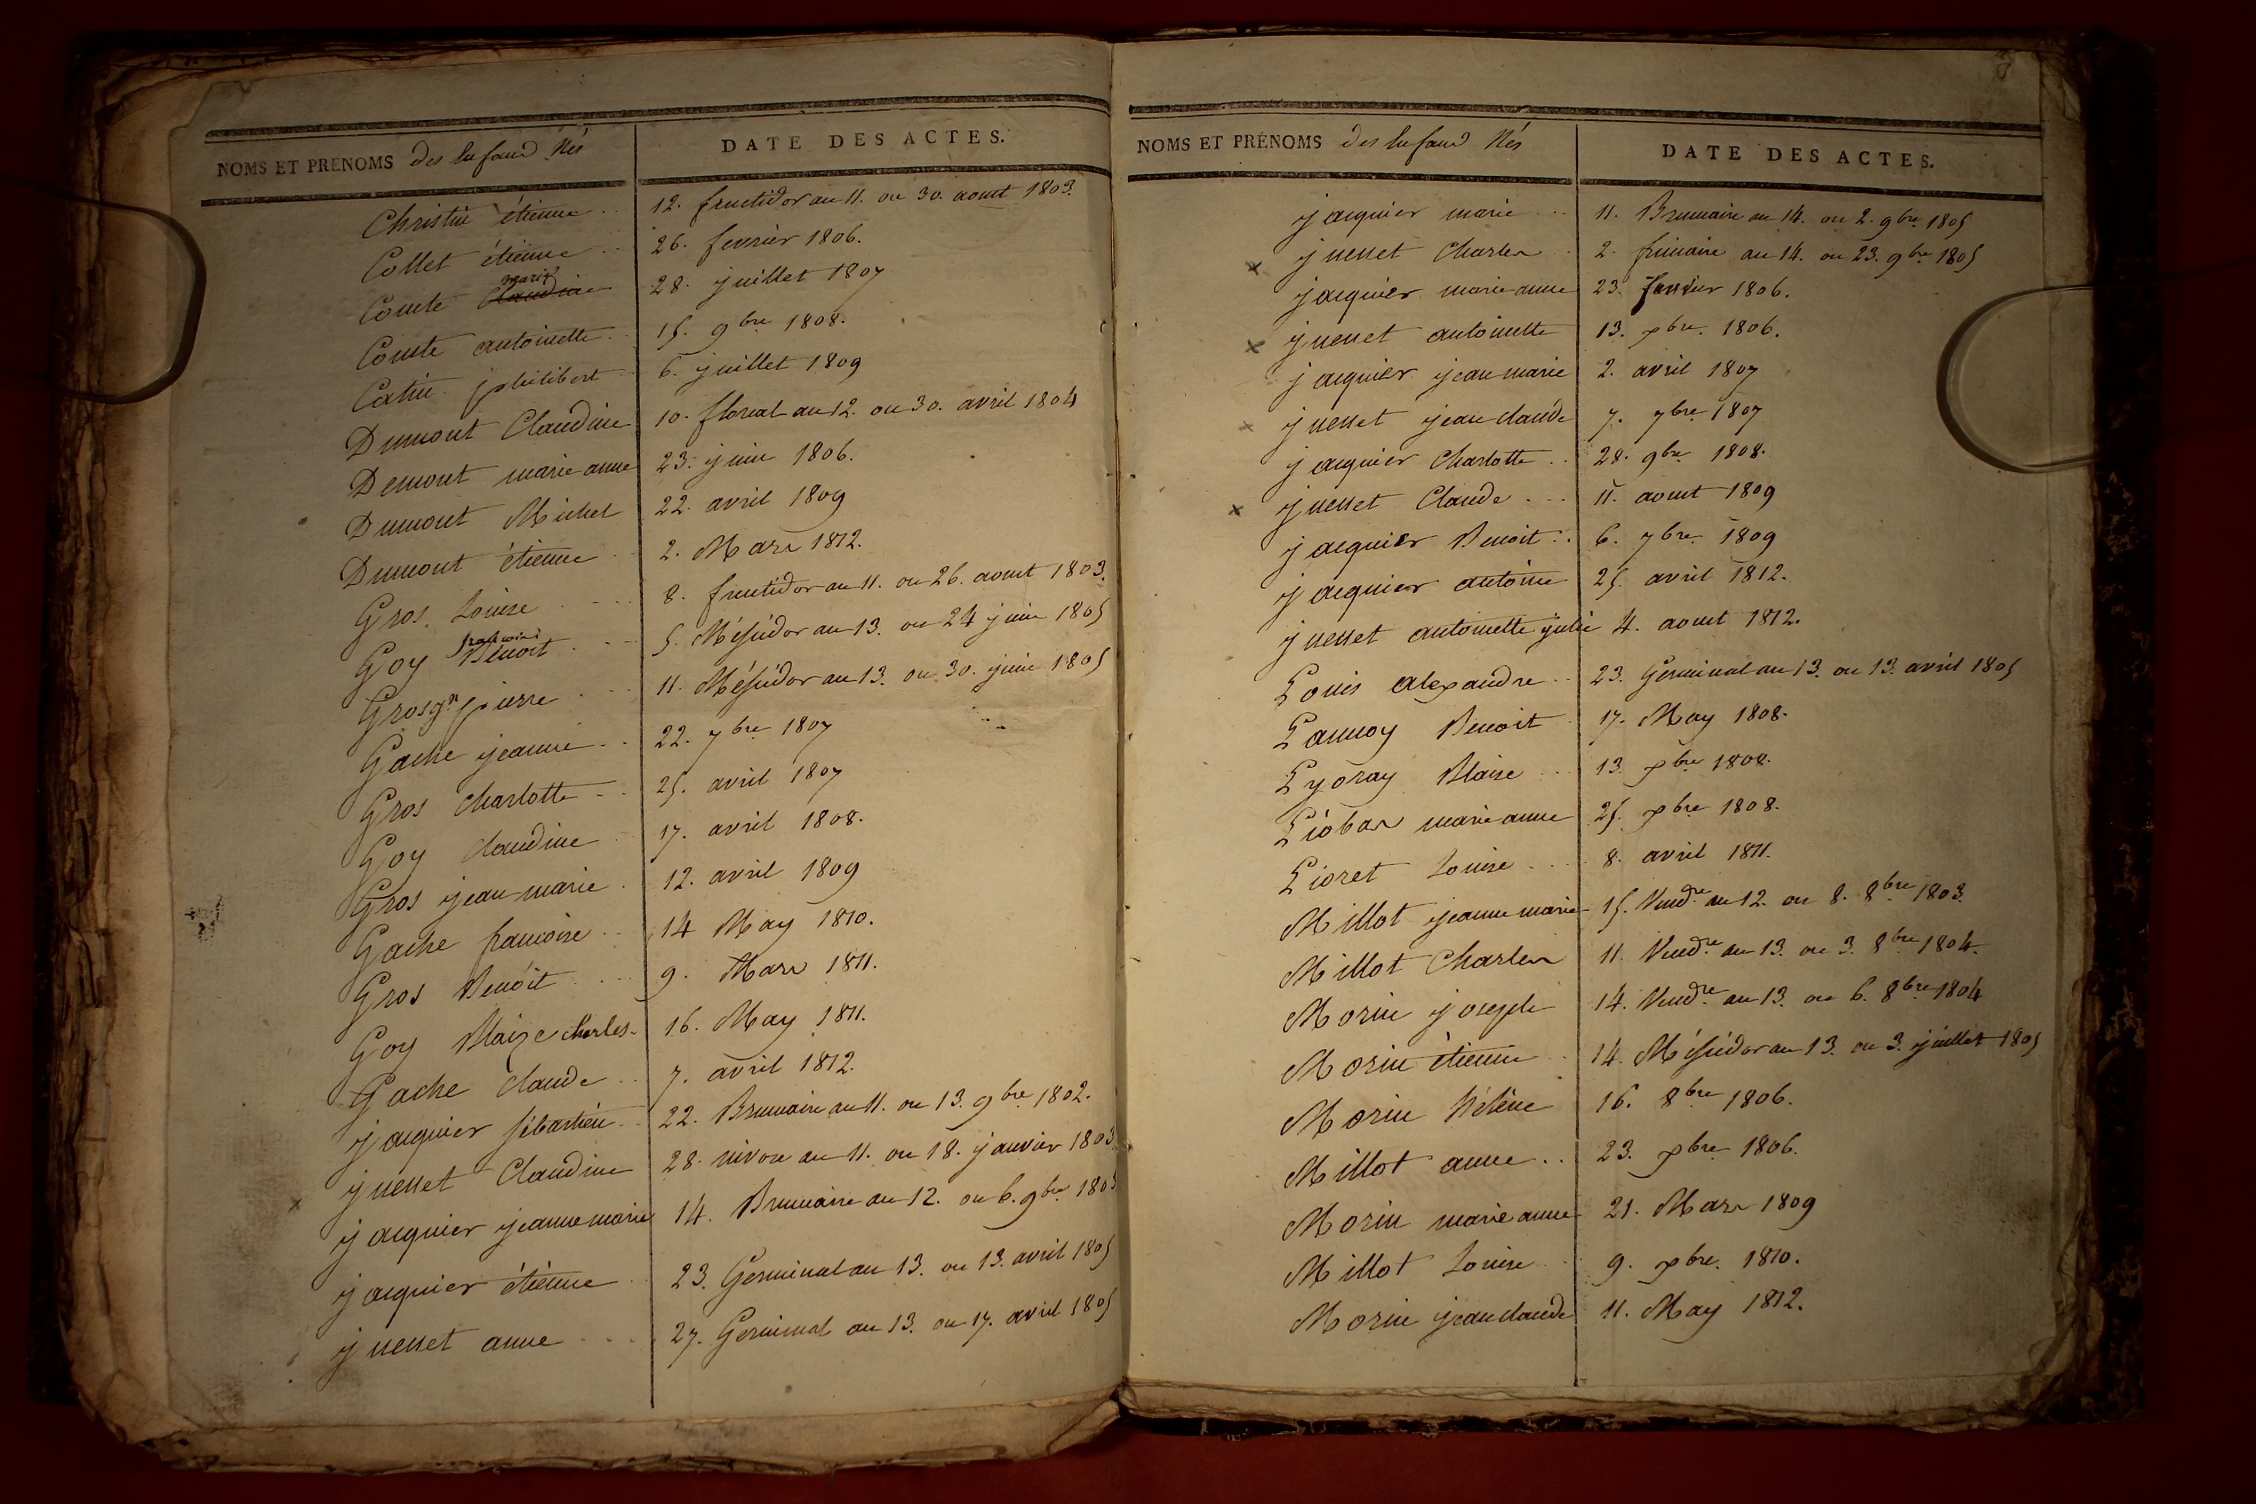 NOMS ET PRENOMS des Enfans Nés DATE DES ACTES.
Christin étienne 12. fructidor an 11. ou 30. aout 1803.
Collet étienne 26. fevrier 1806.
Comte Claudine marie 28. juillet 1807
Comte antoinette 15. 9bre 1808.
Catin philibert 6. juillet 1809
Dumont Claudine 10. floreal an 12. ou 30. avril 1804
Demont marie anne 23. juin 1806.
Dumont Michel 22. avril 1809
Dumont étienne 2. Mars 1812.
Gros Louise 8. fructidor an 11. ou 26. aout 1803.
Goy Benoit 5. Méssidor an 13. ou 24 juin 1805
Grosgn pierre 11. Méssidor an 13. ou 30. juin 1805
Gache jeanne 22. 7bre 1807
Gros Charlotte 25. avril 1807
Goy Claudine 17. avril 1808.
Gros jean-marie 12. avril 1809
Gache francoise 14 May 1810.
Gros Benoit 9. Mars 1811.
Goy Blaize Charles 16. May 1811.
Gache Claude 7. avril 1812.
jacquier sébastien 22. Brumaire an 11. ou 13. 9bre 1802.
juenet Claudine 28. nivose an 11. ou 18. janvier 1803
x jacquier jeanne marie 14. Brumaire an 12. ou 6. 9bre 1803
jacquier étienne 23. Germinal an 13. ou 13. avril 1805
juenet anne 27. Germinal an 13. ou 17. avril 1805
NOMS ET PRÉNOMS des Enfans Nés DATE DES ACTES.
jacquier marie 11. Brumaire an 14. ou 2. 9bre 1805
x juenet Charles 2. frimaire an 14. ou 23. 9bre 1805
jacquier marie anne 23. Janvier 1806.
x juenet antoinette 13. xbre. 1806.
jacquier jean marie 2. avril 1807
x juenet jean claude 7. 7bre 1807
jacquier Charlotte 28. 9bre 1808.
x juenet Claude 11. aout 1809
jacquier Benoit 6. 7bre 1809
jacquier antoine 25. avril 1812.
juenet antoinette julie 4. aout 1812.
Louis alexandre 23. Germinal an 13. ou 13. avril 1805
Lannoy Benoit 17. May 1808.
Lyoray Blaise 13. xbre 1808.
Liobar marie anne 25. xbre 1808.
Lioret Louise 8. avril 1811.
Millot jeanne marie 15. Vendre an 12. ou 8. 8bre 1803.
Millot Charles 11. Vendre an 13. ou 3. 8bre 1804.
Morin joseph 14. Vendre an 13. ou 6. 8bre 1804
Morin étienne 14. Méssidor an 13. ou 3. juillet 1805
Morin hélène 16. 8bre 1806.
Millot anne 23. xbre 1806.
Morin marie anne 21. Mars 1809
Millot Louise 9. xbre. 1810.
Morin jean claude 11. May 1812.